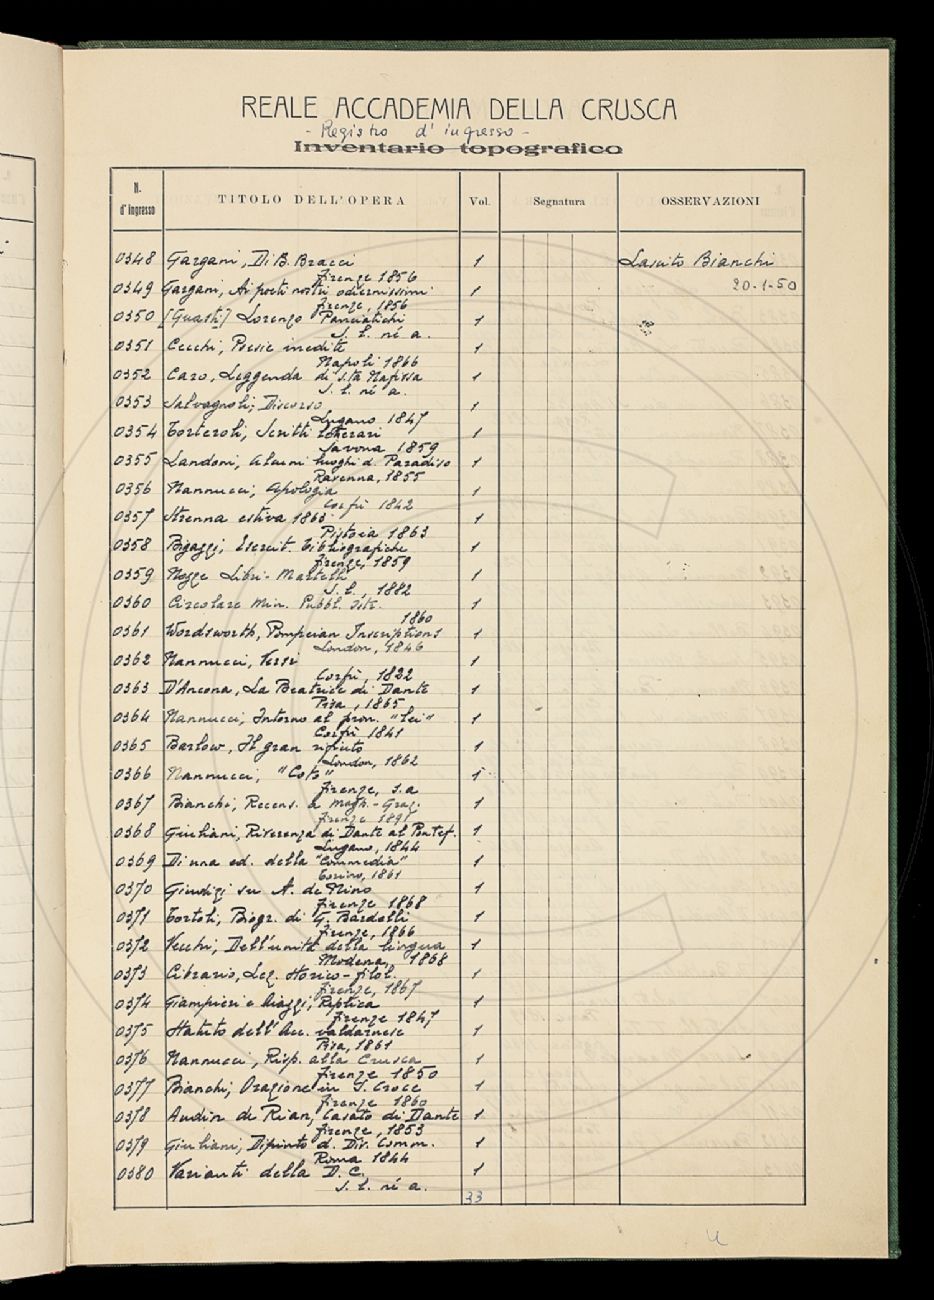 REALE ACCADEMIA DELLA CRUSCA
- Registro d'ingresso -
Inventario topografico
N. d'ingresso TITOLO DELL'OPERA Vol. Segnatura OSSERVAZIONI
0348 Gargani, Di B. Bracci 1 Lascito Bianchi
Firenze 1856 20-1-50
0349 Gargani, Ai poeti nostri odiernissimi 1
Firenze, 1856
0350 [Guasti] Lorenzo Panciatichi 1
S. l. né a.
0351 Cecchi, Poesie inedite 1
Napoli 1866
0352 Caro, Leggenda di s.ta Nafissa 1
S. l. né a.
0353 Salvagnoli, Discorso 1
Lugano 1847
0354 Torteroli, Scritti letterari 1
Savona 1859
0355 Landoni, Alcuni luoghi d. Paradiso 1
Ravenna, 1855
0356 Nannucci, Apologia 1
Corfù 1842
0357 Strenna estiva 1863 1
Pistoia 1863
0358 Bigazzi, Esercit. bibliografiche 1
Firenze, 1859
0359 Nozze Libri-Martelli 1
S. l., 1882
0360 Circolare Min. Pubbl. Istr. 1
1860
0361 Wordsworth, Pompeian Inscriptions 1
London, 1846
0362 Nannucci, Versi 1
Corfù, 1822
0363 D'Ancona, La Beatrice di Dante 1
Pisa, 1865
0364 Nannucci, Intorno al pron. "lei" 1
Corfù 1841
0365 Barlow, Il gran rifiuto 1
London, 1862
0366 Nannucci, "Coto" 1
Firenze, s.a
0367 Bianchi, Recens. a 1
Firenze 1891
0368 Giuliani, Riverenza di Dante al Pontef. 1
Lugano, 1844
0369 Di una ed. della "Commedia" 1
Torino, 1861
0370 Giudizi su A. de Nino 1
Firenze 1868
0371 Tortoli, Biogr. di G. Bardelli 1
Firenze, 1866
0372 Vecchi, Dell'unità della lingua 1
Modena, 1868
0373 Cibrario, Lez. storico-filol. 1
Firenze, 1867
0374 Giampieri e Aiazzi, Replica 1
Firenze 1847
0375 Statuto dell'Acc. valdarnese 1
Pisa, 1861
0376 Nannucci, Risp. alla Crusca 1
Firenze 1850
0377 Bianchi, Orazione in S. Croce 1
Firenze 1860
0378 Audin de Rian, Casato di Dante 1
Firenze, 1853
0379 Giuliani, Dipinto d. Div. Comm. 1
Roma 1844
0380 Varianti della D.C. 1
S. l. né a.
33